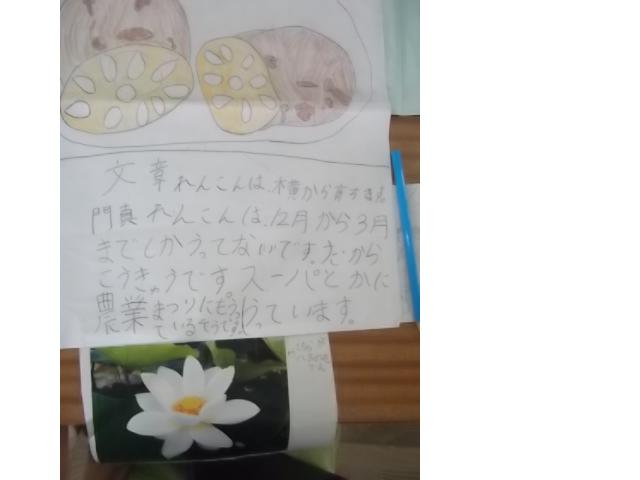 文章 れんこんは、横から育ちます
門真れんこんは、12月から3月
までしかうってないです。だから
こうきゅうです。スーパーとかに
農業まつりにもうっているそうです。うっています。